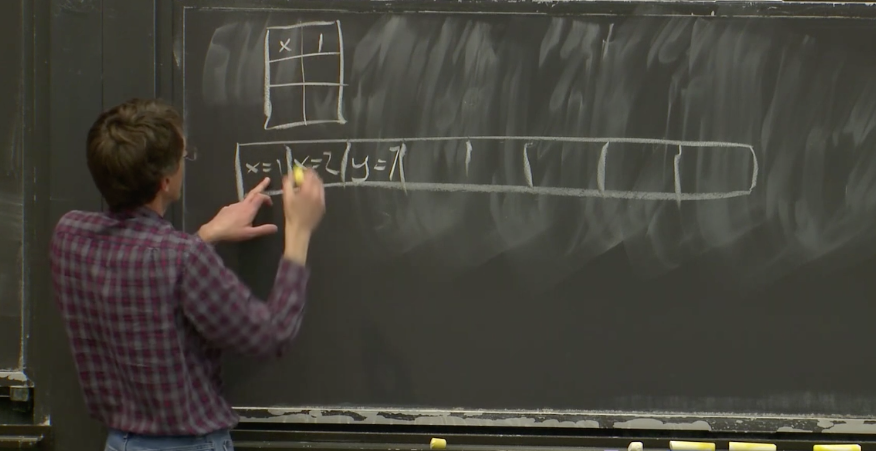 x 1
x=1 x=2 y=7